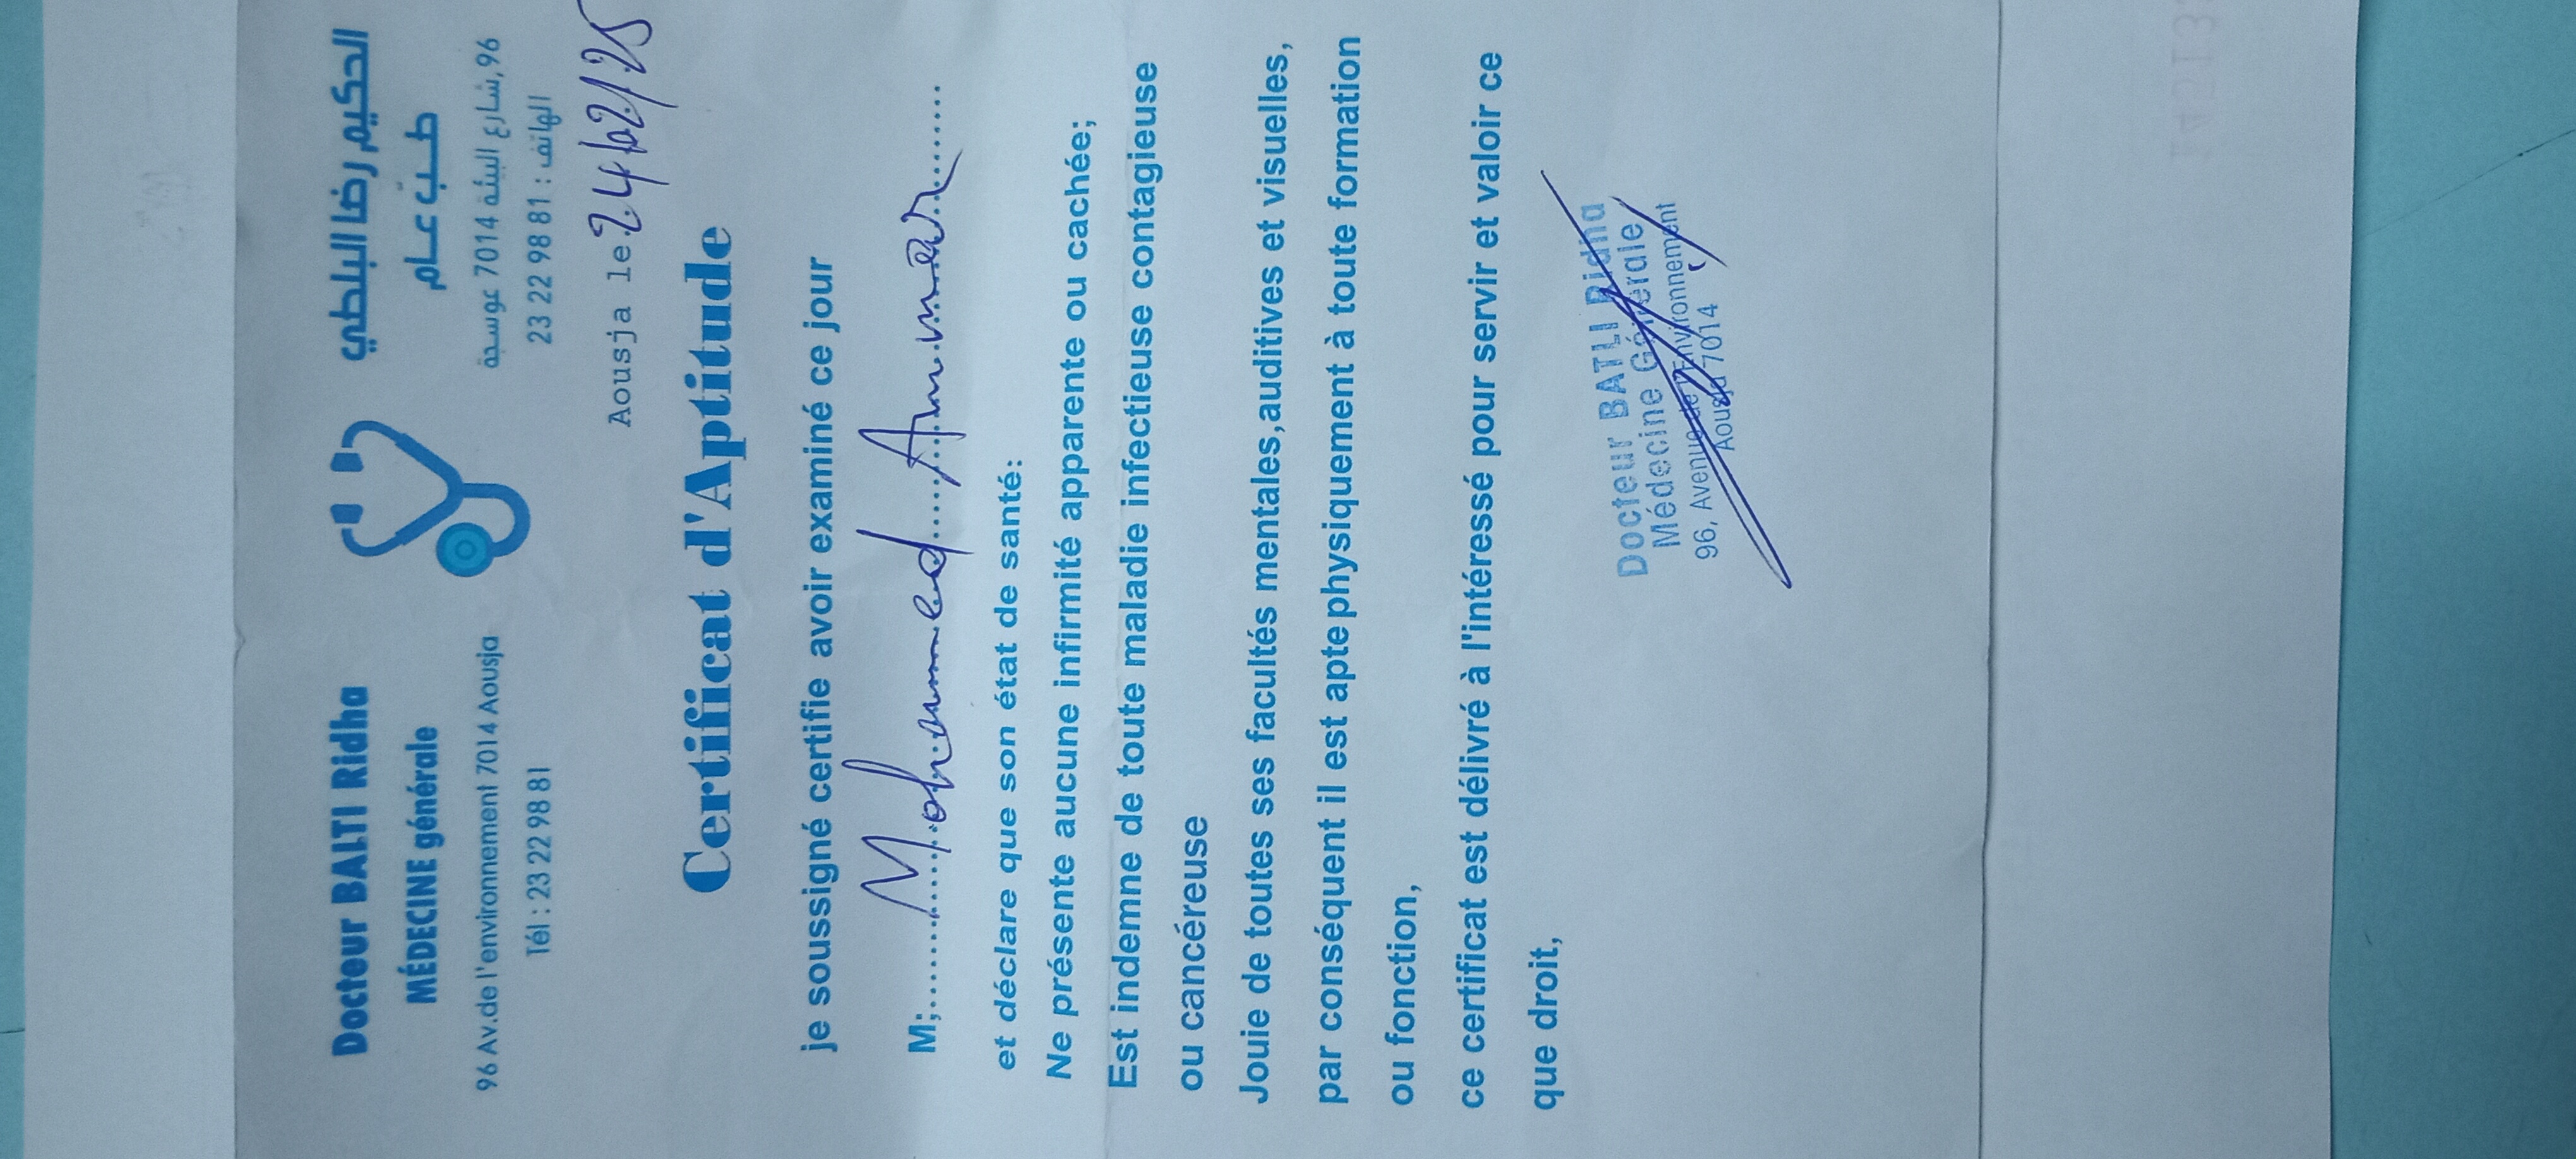 Docteur BALTI Ridha
MÉDECINE générale
96 Av.de l'environnement 7014 Aousja
Tél : 23 22 98 81
الحكيم رضا البلطي
طب عام
96,شارع البيئة 7014 عوسجة
الهاتف : 23 22 98 81
Aousja le 24/02/25
Certificat d'Aptitude
je soussigné certifie avoir examiné ce jour
M;....Mohammed Ammar....
et déclare que son état de santé:
Ne présente aucune infirmité apparente ou cachée;
Est indemne de toute maladie infectieuse contagieuse
ou cancéreuse
Jouie de toutes ses facultés mentales,auditives et visuelles,
par conséquent il est apte physiquement à toute formation
ou fonction,
ce certificat est délivré à l'intéressé pour servir et valoir ce
que droit,
Docteur BATLI Ridha
Médecine Générale
96, Avenue de l'Environnement
Aousja 7014